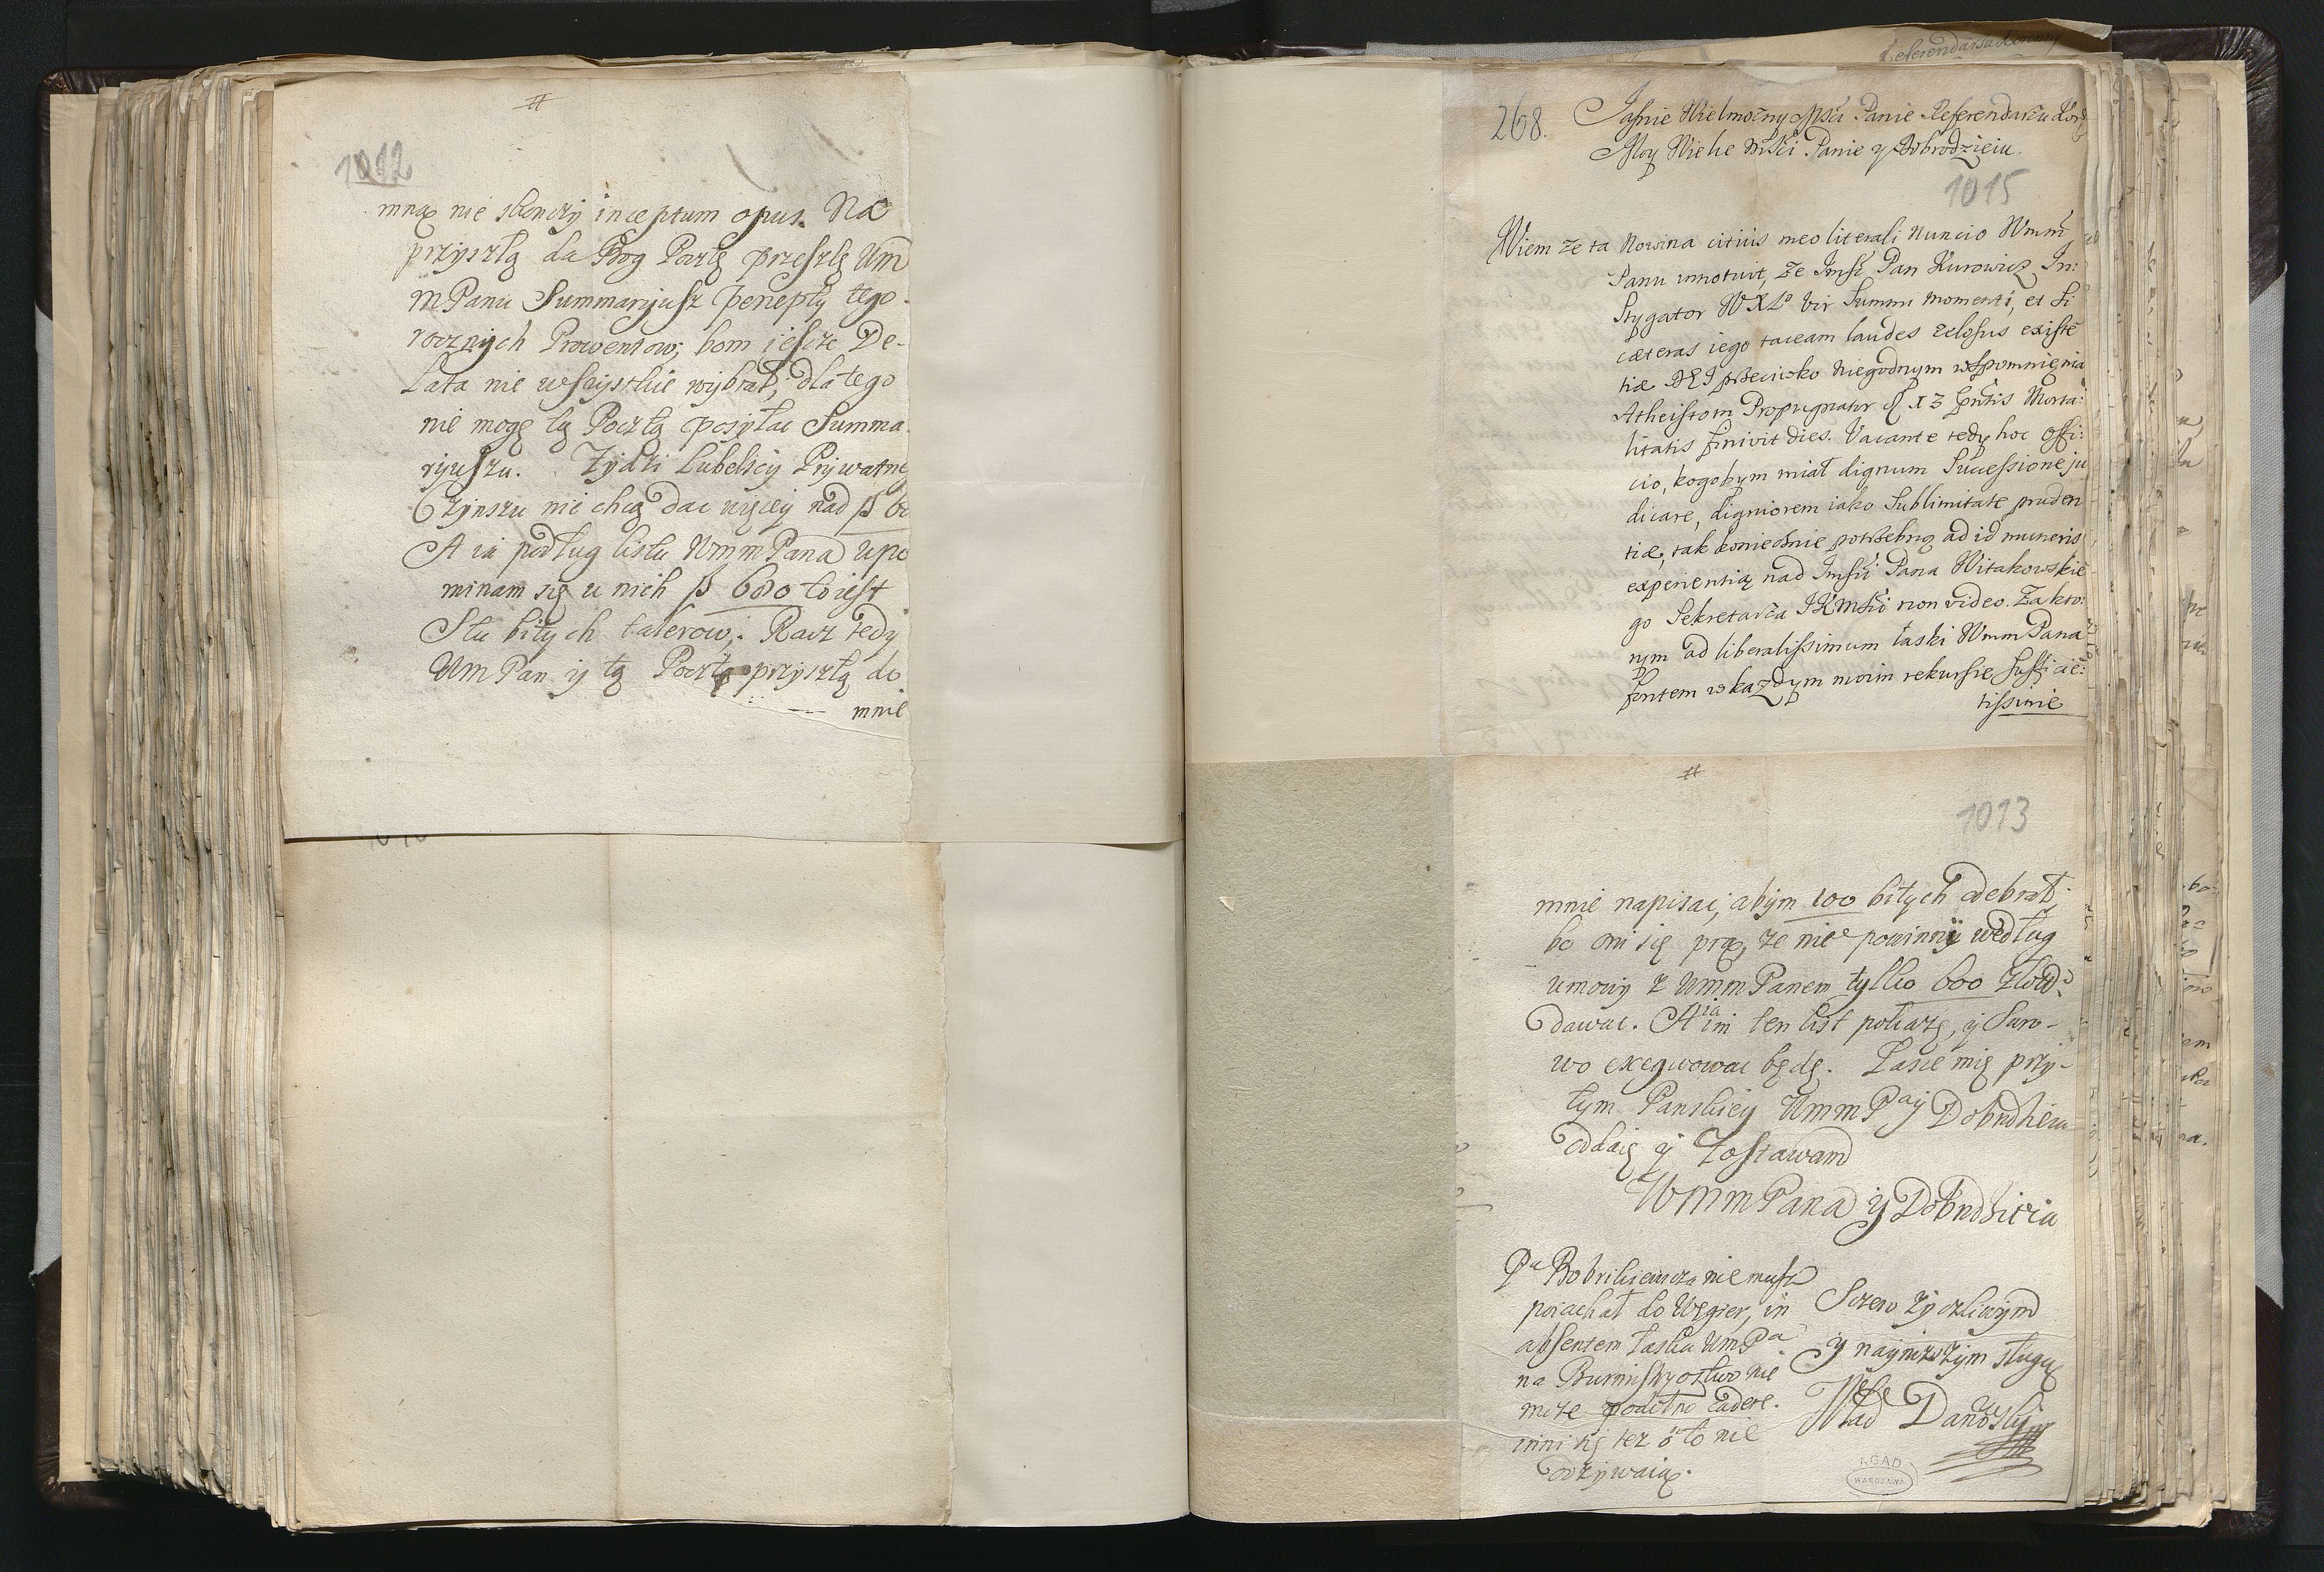 #
1012
mną nie skonczy inceptum opus. Na
przyszłą da Bog Pocztę przeszlę Um
mPanu Summaryusz penepły tego-
rocznych Prowentow, bom ieszcze De-
lata nie wszystkie wybrał; dlatego
nie mogę tą Pocztą posyłac Summa
ryuszu. Zydzi Lubelscy Prywatne
Czynszu nie chcą dac więcey nad
A ia podług listu Umm Pana upo
minam się u nich 600 to iest
Stu bitych talerow; Racz tedy
Um Pan y tą Pocztą przyszłą do
mnie
268. Jasnie Wielmożny Msci Panie Referendarżu Kor
Moy Wielce Msći Panie y Dobrodzieiu.
1015
Wiem że ta Nowina citius meo literali Nuncio Wmm
Panu innotuit, że Jmsć Pan Kurowicz In:
stygator WXL vir summi momenti, et si
cæteras iego taceam laudes zelosus existē
tiæ DEI przeciwko niegodnym wspomnienia
Atheistom Propugnator 13 pntis Morta:
litatis finivit dies. Vacante tedy hoc offi:
cio, kogobym miał dignum Successione ju
dicare, digniorem iako Sublimitate pruden
tiæ, tak koniecznie potrzebną ad id muneris
experientią nad Jmsći Pana Witakowskie
go Sekretarża JKMśći non video. Za kto:
rym ad liberalissimum łaski Wmm Pana
fontem w każdym moim rekursie sufficie:
tissime
#
1013
mnie napisac, abym 100 bitych odebrał;
bo oni się prą, że nie powinny według
umowy z Umm Panem tylko 600 złotd
dawac. A ia im ten list pokażę, y Suro-
wo exegwowac będę. Łasce mię przy-
tym Panskiey UmmPay Dobrodzieia
oddaię y zostawam
WMmPana y Dobrodzieia
Pa Bobrikiewicza nie masz
poiachał do Węgier, in
absentem łaska UmPa
na Burmistrzostwo nie
może podobno cadere.
inni się tez o to nie
odzywaią.
Szczerze życzliwym
y nayniższym sługą
Wład Danowski
AGAD
WARSZAWA